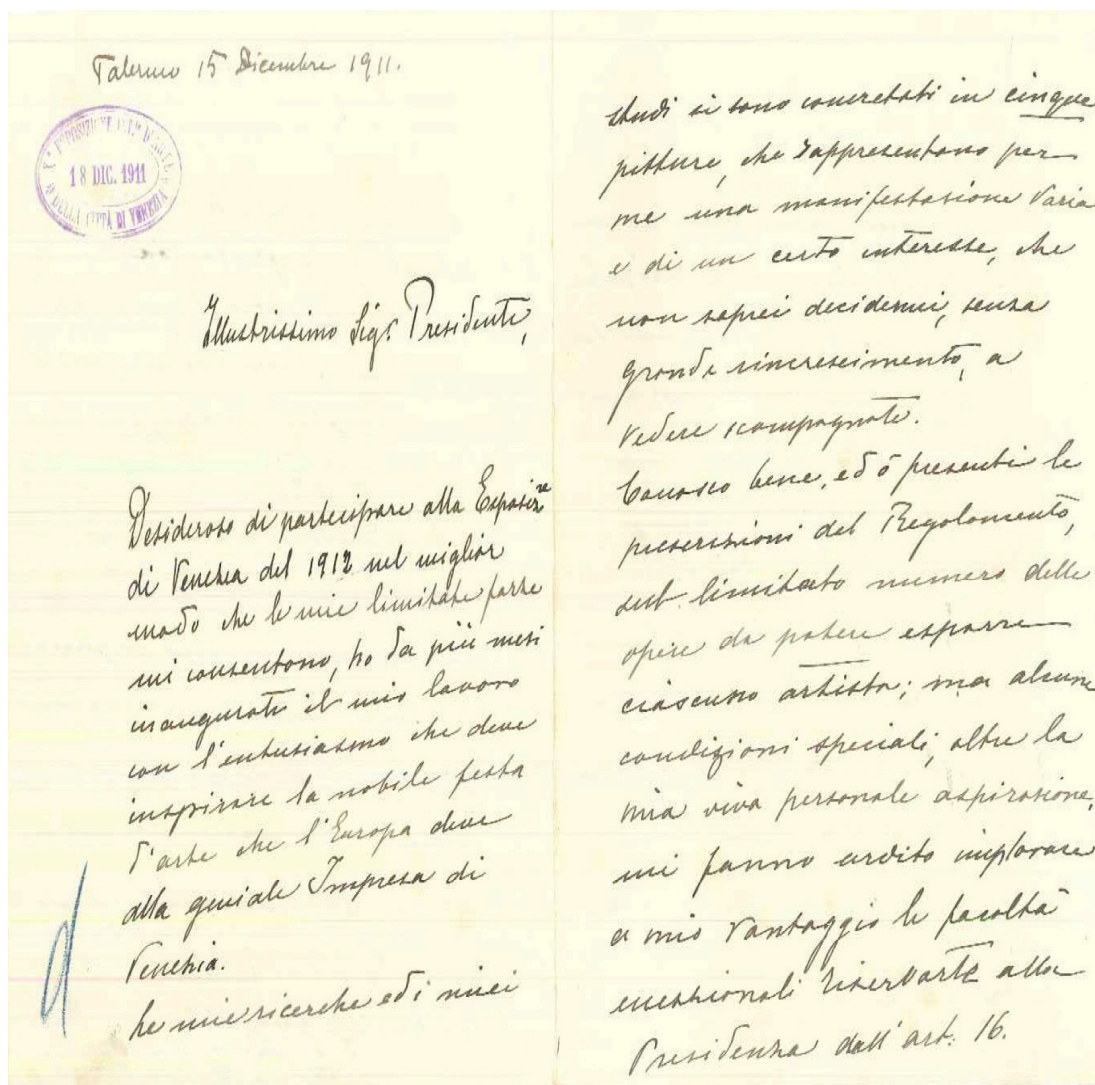 Palermo 15 Dicembre 1911.
X.ª ESPOSIZIONE D'ARTE
18 DIC. 1911
DELLA CITTÀ DI VENEZIA
Illustrissimo Sigr Presidente,
Desideroso di partecipare alla Esposizne
di Venezia del 1912 nel miglior
modo che le mie limitate forze
mi consentono, ho da più mesi
inaugurato il mio lavoro
con l'entusiasmo che deve
inspirare la nobile festa
d'arte che l'Europa deve
alla geniale Impresa di
Venezia.
Le mie ricerche ed i miei
studi si sono concretati in cinque
pitture, che rappresentano per
me una manifestazione varia
e di un certo interesse, che
non saprei decidermi, senza
grande rincrescimento, a
vedere scompagnate.
Conosco bene, ed ò presenti le
prescrizioni del Regolamento,
sul limitato numero delle
opere da potere esporre
ciascuno artista; ma alcune
condizioni speciali, oltre la
mia viva personale aspirazione,
mi fanno ardito implorare
a mio vantaggio le facoltà
eccezionali riservate alla
Presidenza dall'art. 16.